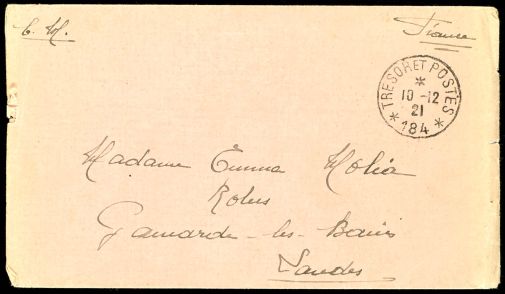 F. M.
France
TRESOR ET POSTES
*
10 -12
21
* 184 *
Madame Emma Molia
Robus
Gamarde-les-Bains
Landes